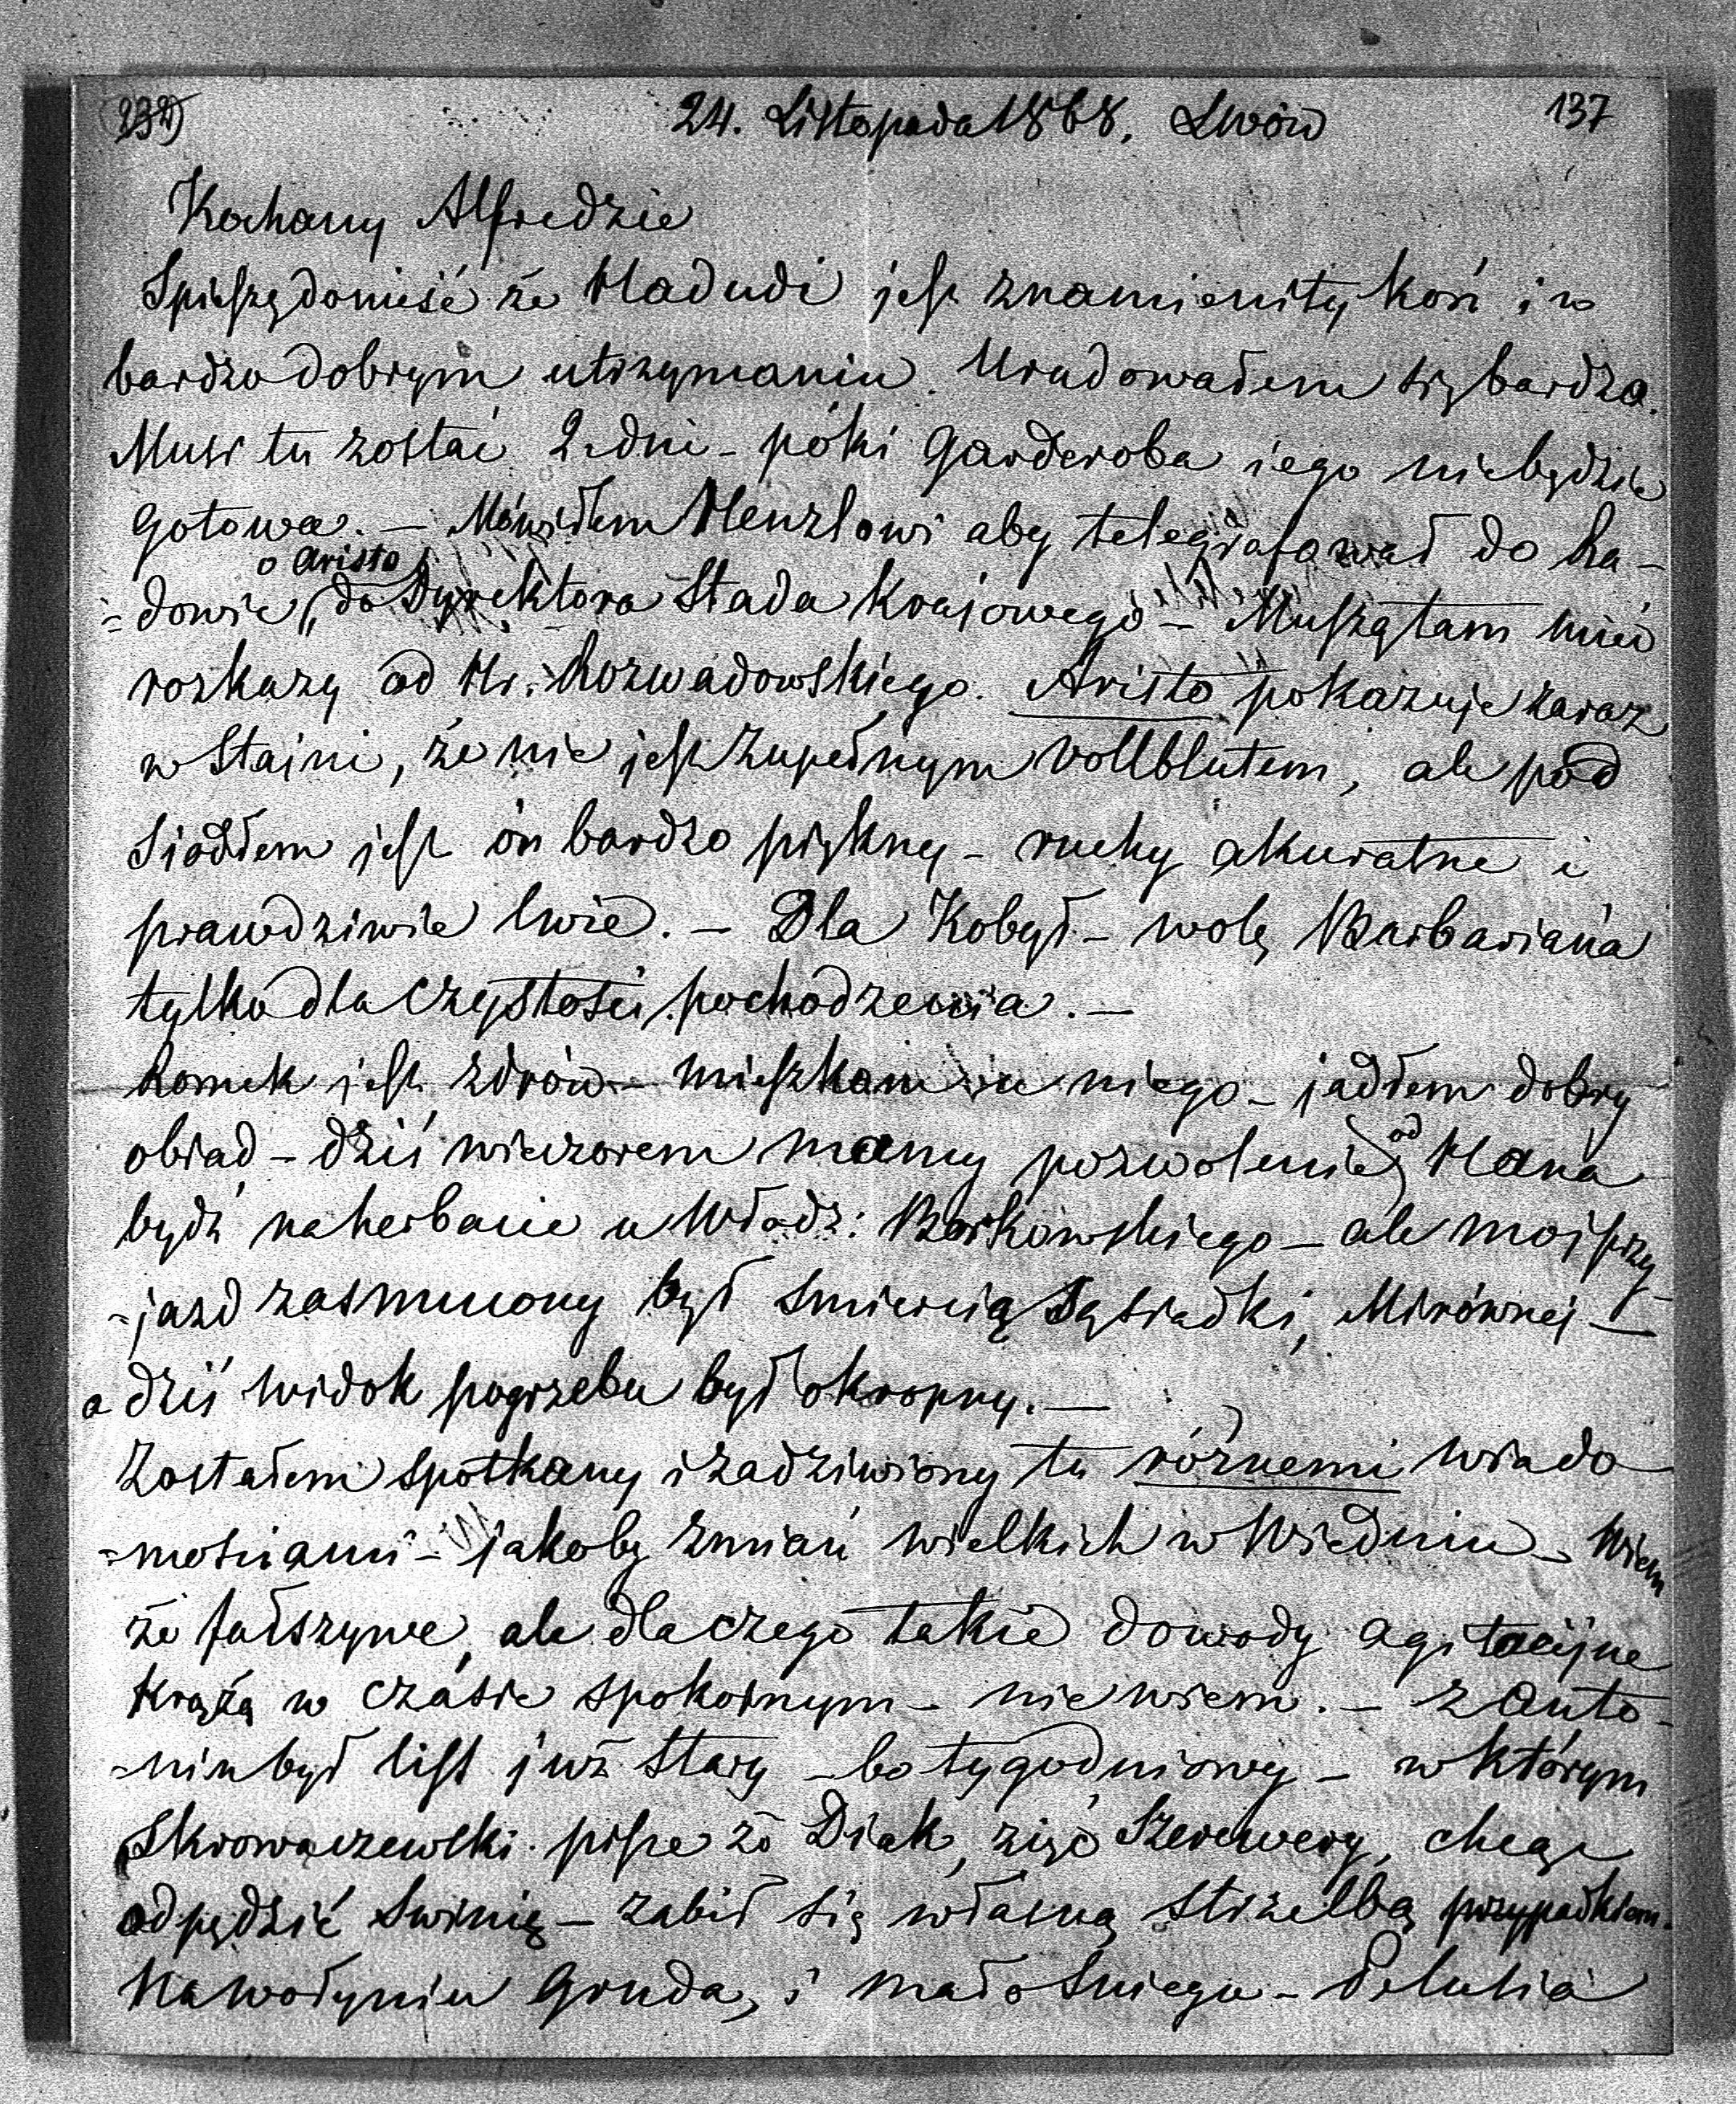 232 24. Listopada 1868. Lwów 137
Kochany Alfredzie
Spieszę donieść że Hadudi jest znamienity koń i w
bardzo dobrym utrzymaniu. Uradowałem się bardzo.
Musi tu zostać 2 dni - póki Garderoba iego niebędzie
Gotowa. — Mówiłem Henzlowi aby telegrafował do Ra-
o Aristo
=dowic, do Dyrektora Stada Krajowego - Muszą tam mieć
rozkazy od Hr. Rozwadowskiego. Aristo pokazuje zaraz
w Stajni, że nie jest zupełnym vollblutem, ale pod
Siodłem jest on bardzo piękny - ruchy akuratne i
prawdziwie lwie. — Dla Kobył - wolę Barbariana
tylko dla czystości pochodzenia. —
Romek jest zdrów - mieszkam u niego - jadłem dobry
obiad - dziś wieczorem mamy pozwolenie od Hana
bydź na herbacie u Włodz: Borkowskiego - ale moj przy-
=jazd zasmucony był smiercią Sąsiadki, Mirównej —
a dziś widok pogrzebu był okropny. —
Zostałem spotkany i zadziwiony tu różnemi wiado
=mosciami - jakoby zmian wielkich w Wiedniu - Wiem
że fałszywe, ale dlaczego takie dowody agitacijne
Krążą w czasie spokojnym - nie wiem. - Z Anto-
=nin był list już stary - bo tygodniowy - w którym
Skrowaczewski pisze że Diak, zięć Szerewery, chcąc
odpędzić Swinię - zabił się własną strzelbą przypadkiem.
Na Wołyniu Gruda, i mało Sniegu - Pelusia